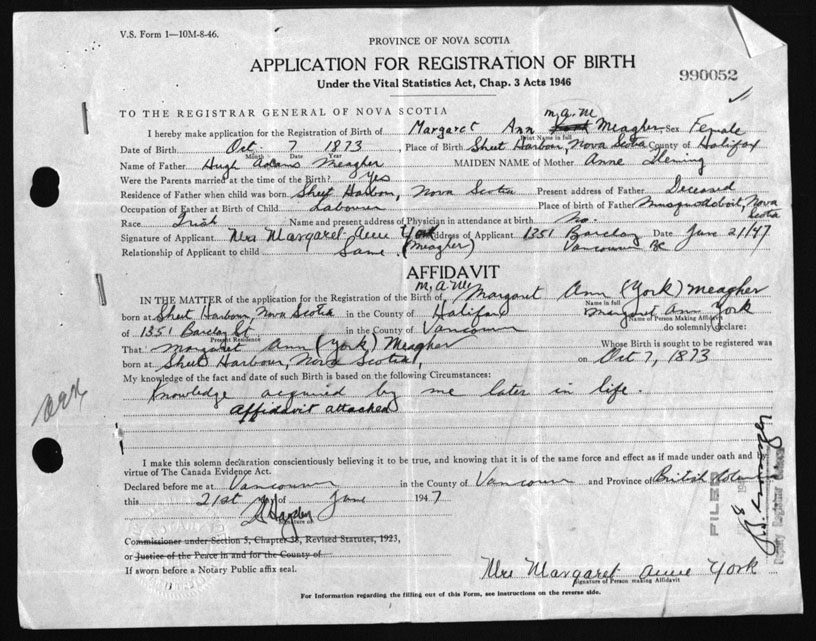 V.S. Form 1—10M-8-46.
PROVINCE OF NOVA SCOTIA
APPLICATION FOR REGISTRATION OF BIRTH
Under the Vital Statistics Act, Chap. 3 Acts 1946
990052
TO THE REGISTRAR GENERAL OF NOVA SCOTIA
m.a.m
I hereby make application for the Registration of Birth of Margaret Ann York Meagher Sex Female
Print Name in full
Date of Birth Oct. 7 1873, Place of Birth Sheet Harbour, Nova Scotia County of Halifax
Month Date Year
Name of Father Hugh Adams Meagher MAIDEN NAME of Mother Anne Fleming
Were the Parents married at the time of the Birth? Yes
Residence of Father when child was born Sheet Harbour, Nova Scotia Present address of Father Deceased
Occupation of Father at Birth of Child Labourer Place of birth of Father Musquodoboit, Nova Scotia
Race Irish Name and present address of Physician in attendance at birth no.
Signature of Applicant Mrs Margaret Anne York Address of Applicant 1351 Barclay Date June 21/47
Relationship of Applicant to child Same (Meagher) Vancouver BC
AFFIDAVIT
m.a.m
IN THE MATTER of the application for the Registration of Birth of Margaret Ann (York) Meagher
Name in full
born at Sheet Harbour, Nova Scotia in the County of Halifax Margaret Ann York
Name of Person Making Affidavit
of 1351 Barclay St in the County of Vancouver do solemnly declare:
Present Residence
That Margaret Ann (York) Meagher Whose Birth is sought to be registered was
born at Sheet Harbour, Nova Scotia, on Oct 7, 1873
My knowledge of the fact and date of such Birth is based on the following Circumstances:
Knowledge acquired by me later in life.
Affidavit attached
I make this solemn declaration conscientiously believing it to be true, and knowing that it is of the same force and effect as if made under oath and by
virtue of The Canada Evidence Act.
Declared before me at Vancouver in the County of Vancouver and Province of British
this 21st day of June 1947
Signature of
Commissioner under Section 5, Chapter 38, Revised Statutes, 1923,
or Justice of the Peace in and for the County of
If sworn before a Notary Public affix seal.
Mrs Margaret Anne York
Signature of Person making Affidavit
For Information regarding the filling out of this Form, see instructions on the reverse side.
FILED
Deputy Registrar General